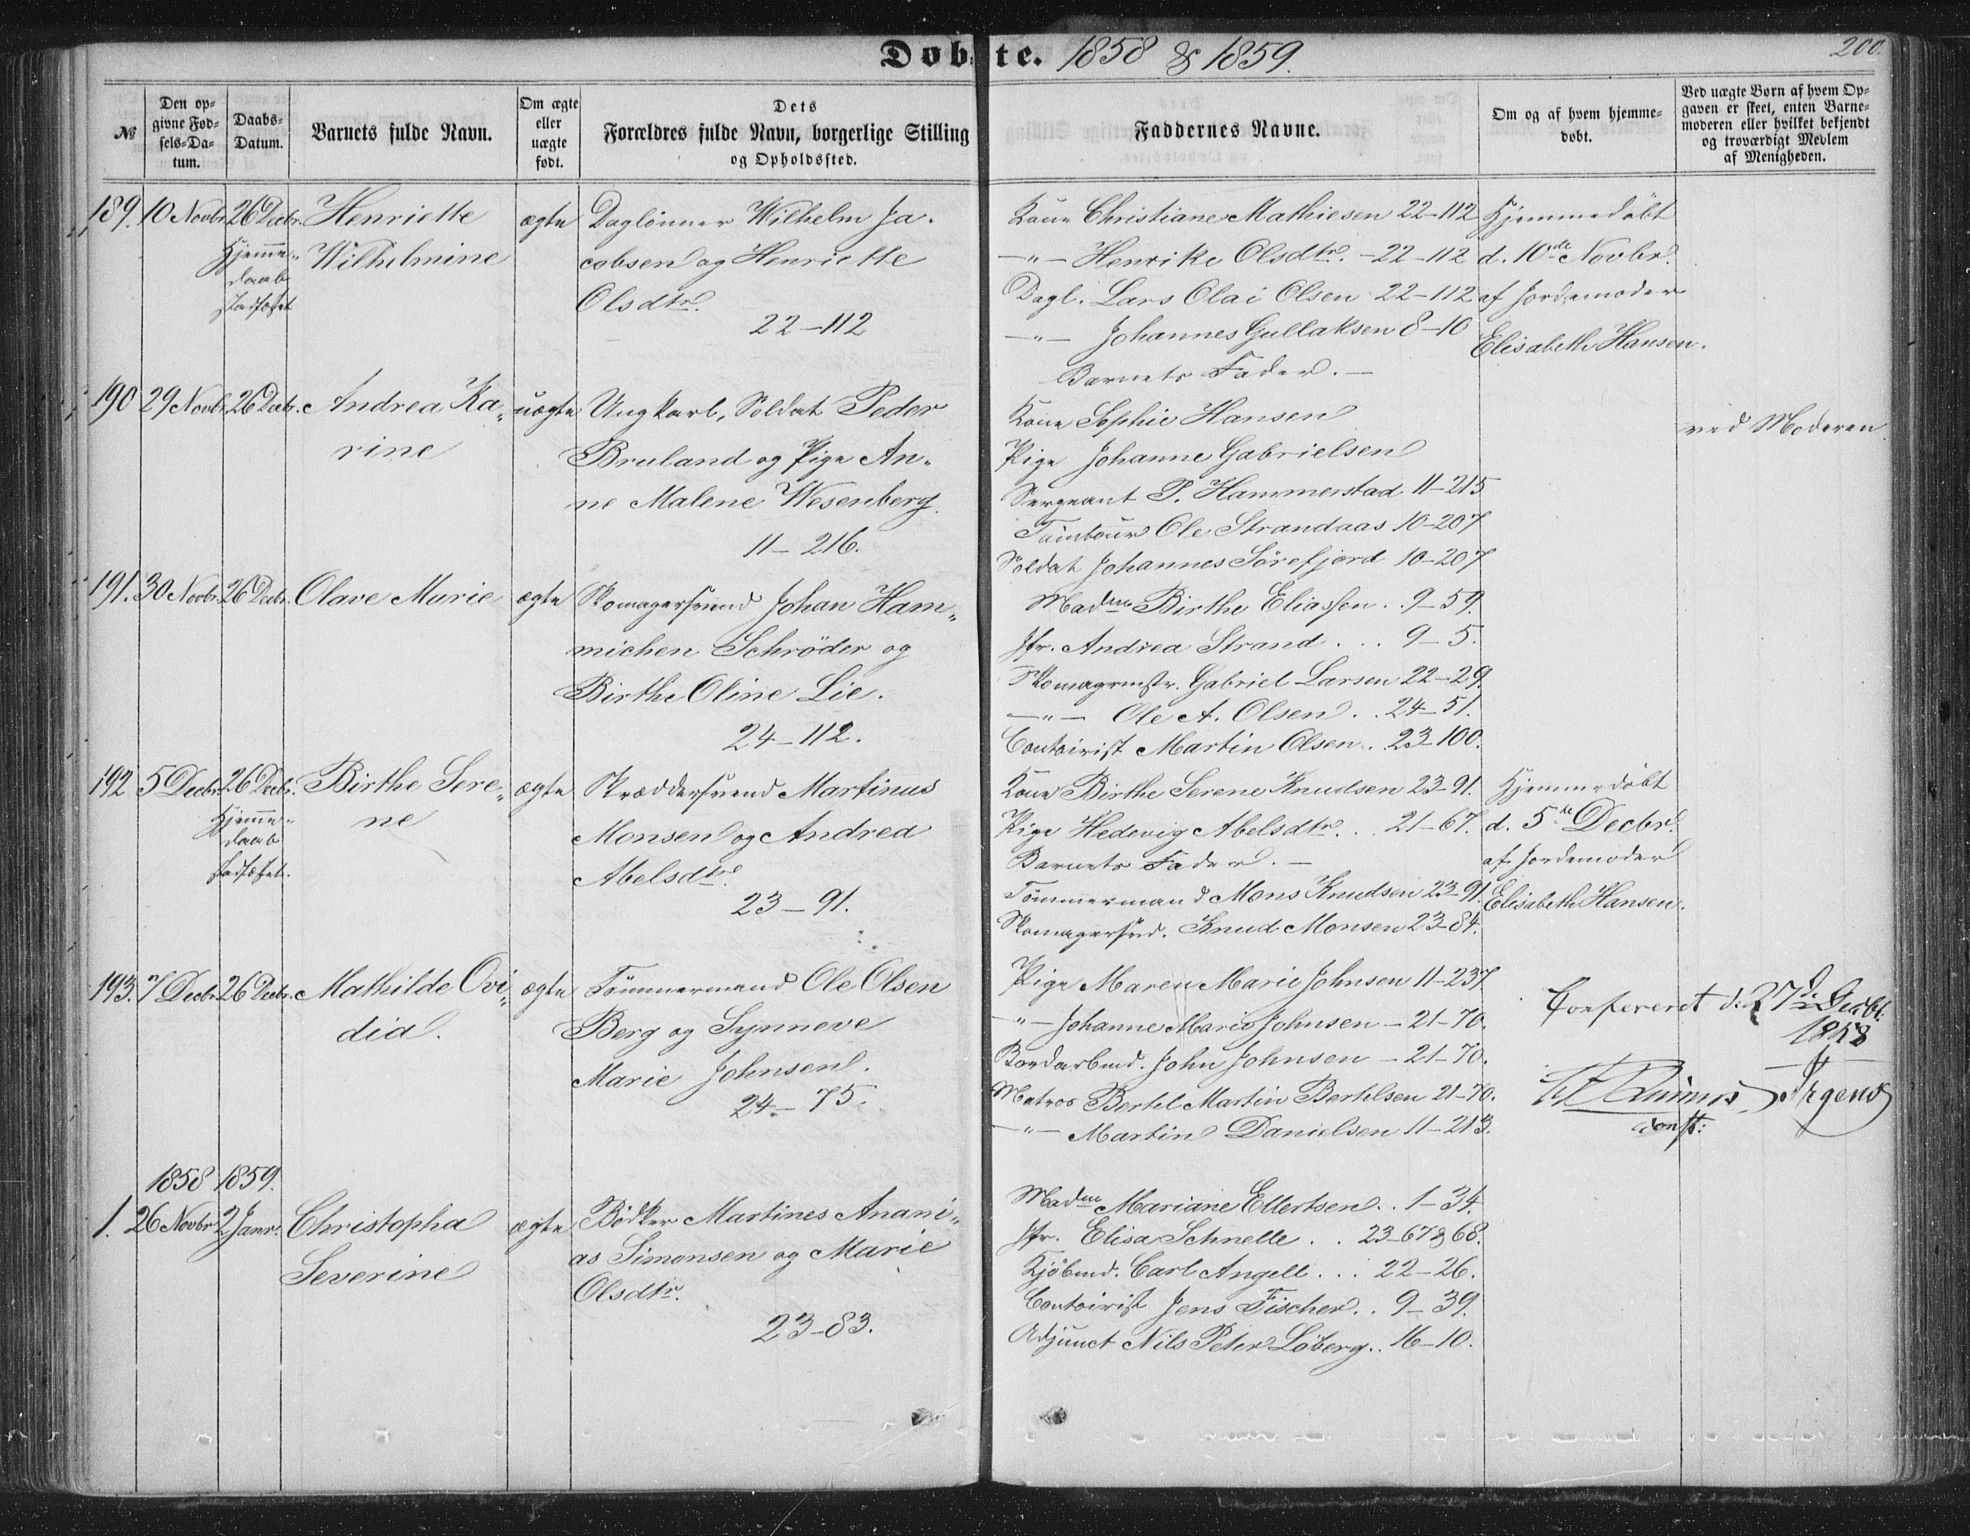 Døbte. 1858 & 1859.
200.
№
Den op-
givne Fød-
sels-Da-
tum.
Daabs-
Datum.
Barnets fulde Navn.
Om ægte
eller
uægte
født.
Dets
Forældres fulde Navn, borgerlige Stilling
og Opholdssted.
Faddernes Navne.
Om og af hvem hjemme-
døbt.
Ved uægte Børn af hvem Op-
gaven er skeet, enten Barne-
moderen eller hvilket bekjendt
og troværdigt Medlem
af Menigheden.
189. 10 Novbr. 26 Decbr.
Hjemme-
daab
stadfæstet
Henriette
Wilhelmine
ægte
Daglönner Wilhelm Ja-
cobsen og Henriette
Olsdtr.
22-112
Kone Christiane Mathiesen 22-112
—"— Henrike Olsdtr. - 22-112
Dagl. Lars Olai Olsen 22-112
—"— Johannes Gullaksen 8-10
Barnets Fader. —
Hjemmedøbt
d. 10de Novbr.
af Jordemoder
Elisabeth Hansen.
190 29 Novbr. 26 Decbr.
Andrea Ka-
rine
uægte
Ungkarl, Soldat Peder
Bruland og Pige An-
ne Malene Wesenberg.
11-216.
Kone Sophie Hansen
Pige Johanne Gabrielsen
Sergeant P. Hammerstad 11-215
Tambour Ole Strandaas 10-207
Soldat Johannes Sörefjord 10-207
ved Moderen.
191. 30 Novbr. 26 Decbr.
Olave Marie
ægte
Skomagersvend Johan Ham-
michen Schrøder og
Birthe Oline Lie.
24-112.
Madme Birthe Eliassen .. 9-59.
Jfr. Andrea Strand . . . 9-5.
Skomagermstr. Gabriel Larsen 22-29.
—"— Ole A. Olsen . . 24-51.
Contoirist Martin Olsen.. 23-100.
192 5 Decbr. 26 Decbr.
Hjemme-
daab
stadfæstet.
Birthe Sere-
ne
ægte
Skræddersvend Martinus
Monsen og Andrea
Abelsdtr.
23-91.
Kone Birthe Serene Knudsen 23-91.
Pige Hedevig Abelsdtr. . . 21-67.
Barnets Fader. —
Tømmermand Mons Knudsen 23-91.
Skomagersvd. Knud Monsen 23-84.
Hjemmedøbt
d. 5te Decbr.
af Jordemoder
Elisabeth Hansen.
193. 7 Decbr. 26 Decbr.
Mathilde Ovi-
dia.
ægte
Tømmermand Ole Olsen
Berg og Synneve
Marie Johnsen.
24-75.
Pige Maren Marie Johnsen 11-237
—"— Johanne Marie Johnsen - 21-70.
Bordarbmd. John Johnsen - 21-70.
Matros Bertel Martin Bertelsen 21-70.
—"— Martin Danielsen 11-213.
Confereret d: 27de Decbr.
1858
Jrgens
const:
1858 1859.
1. 26 Novbr. 2 Janr.
Christopha
Severine
ægte
Bödker Martines Anani-
as Simonsen og Marie
Olsdtr.
23-83.
Madme Mariane Ellertsen . . 1-34.
Jfr. Elisa Schnelle . . 23-67&68.
Kjöbmd. Carl Angell . . . 22-26.
Contoirist Jens Fischer . . 9-39.
Adjunct Nils Peter Löberg.. 16-10.